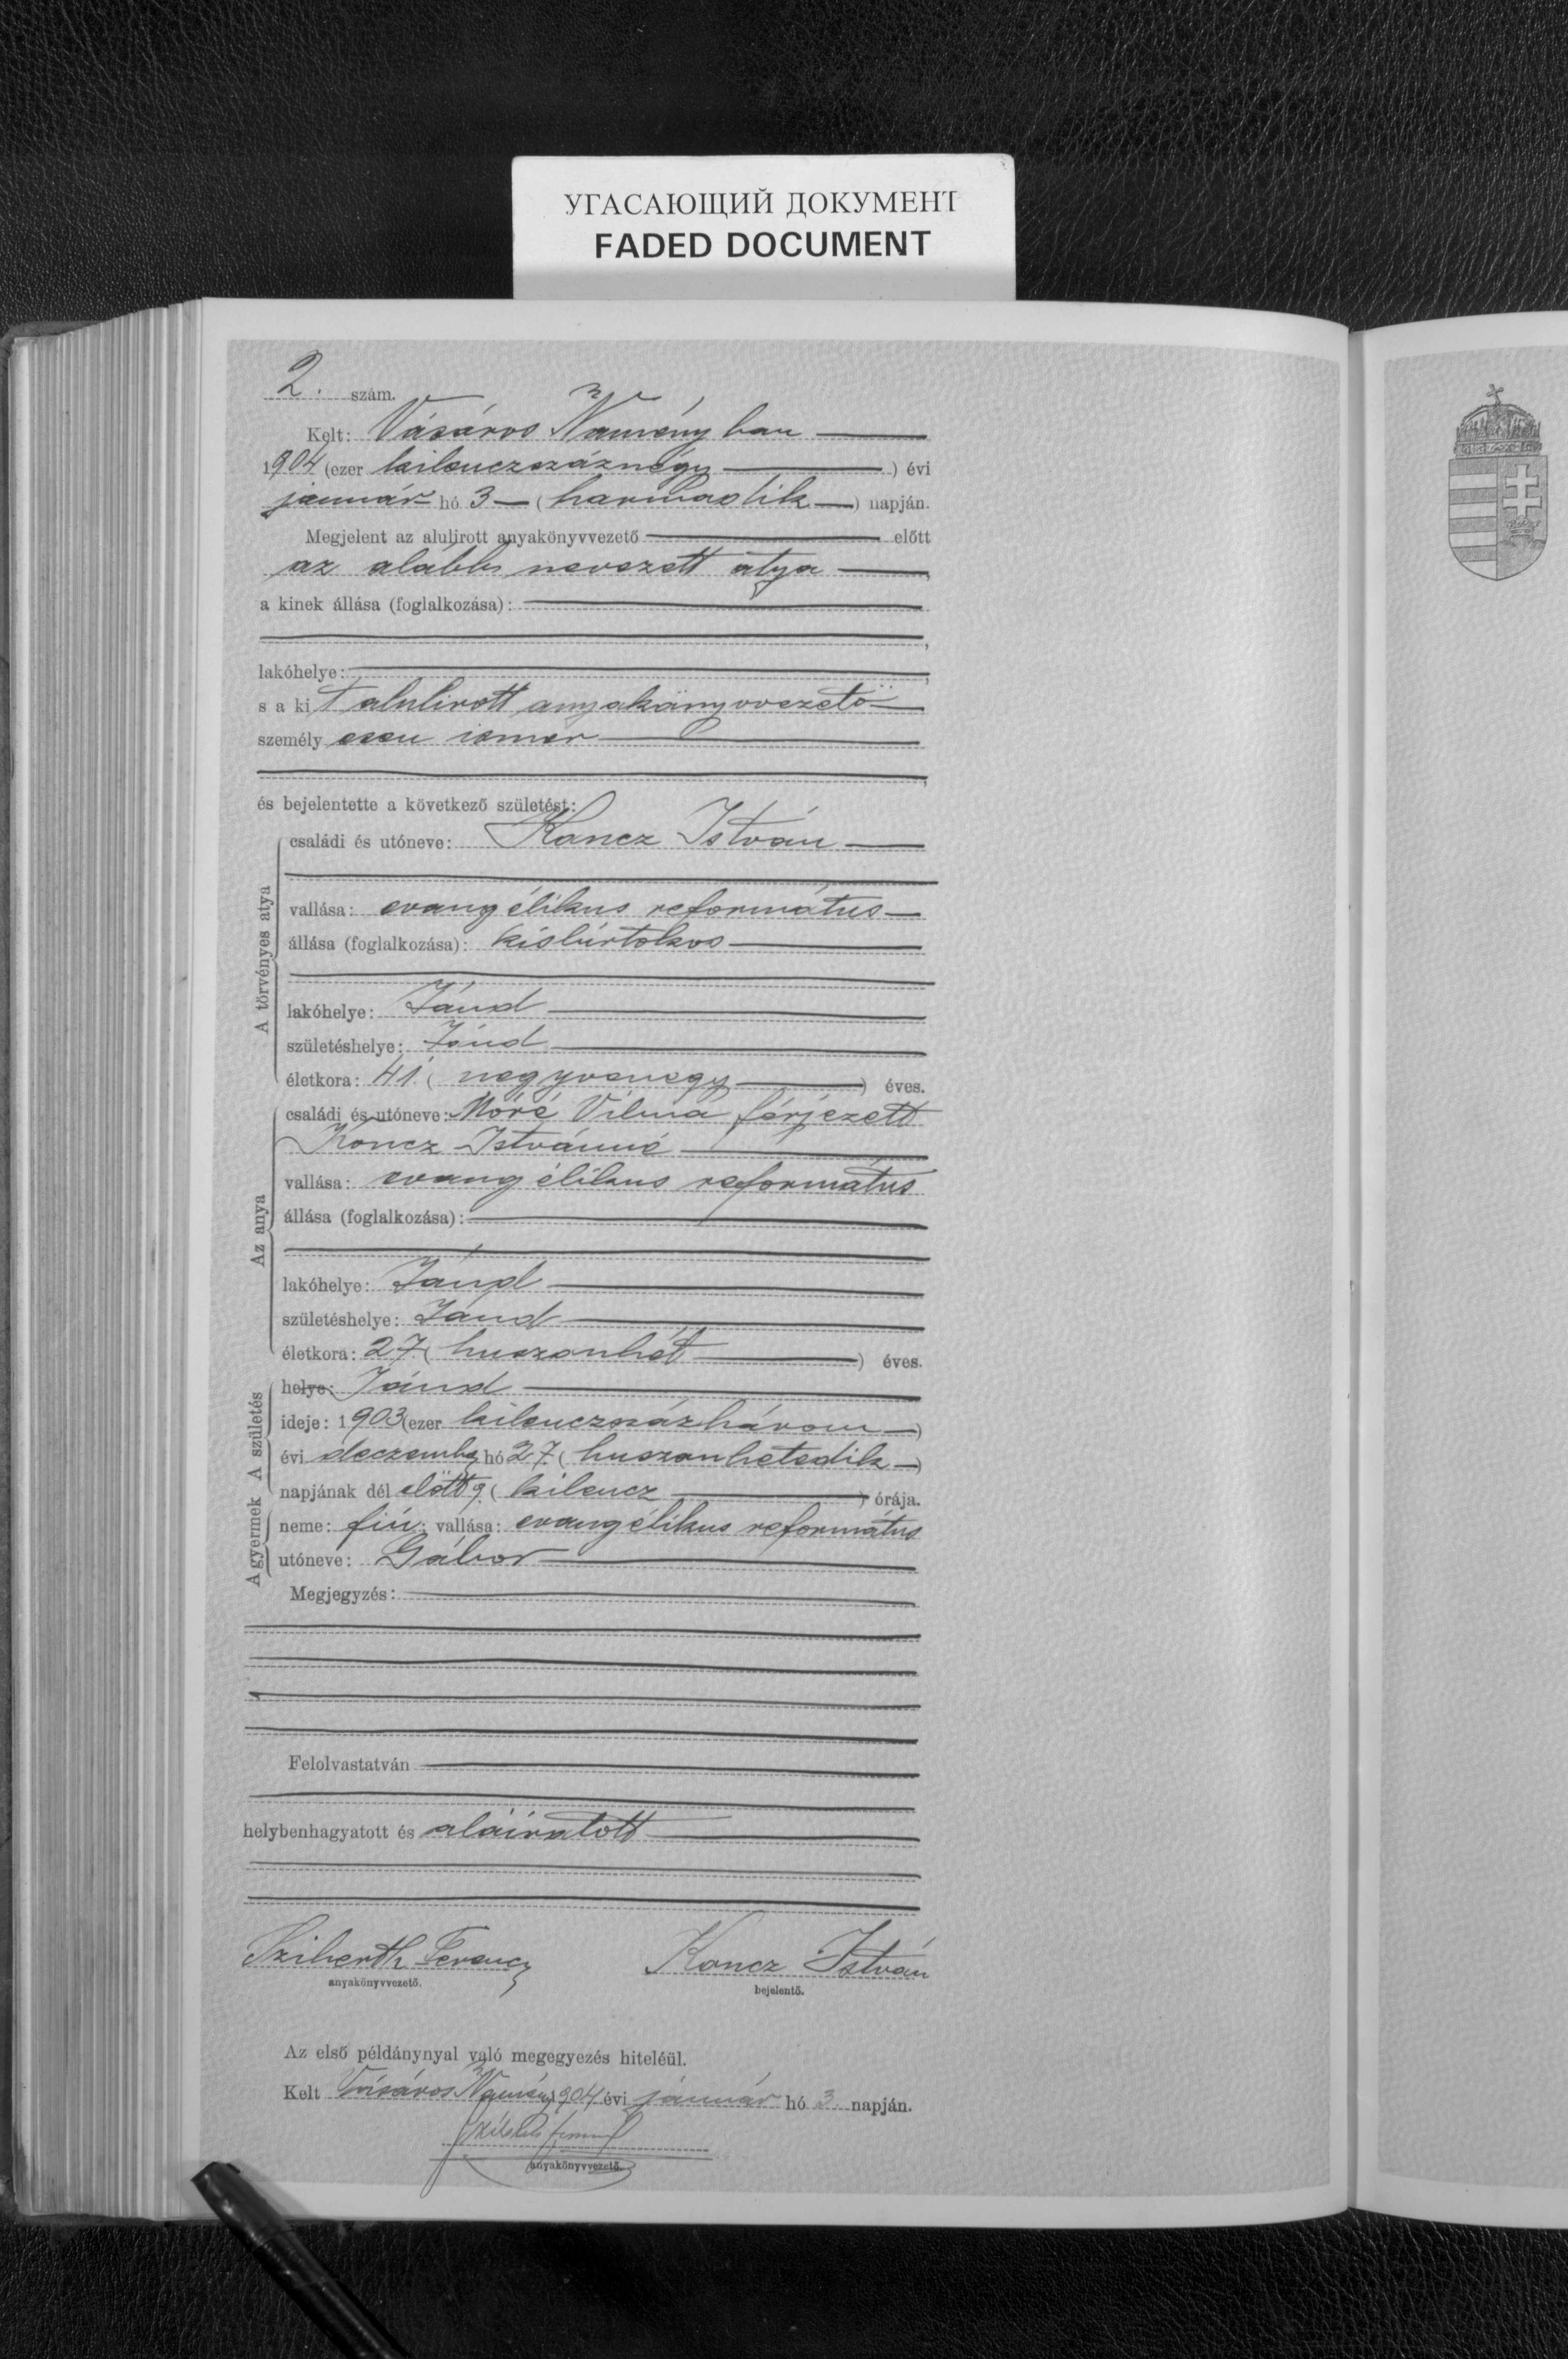 УГАСАЮЩИЙ ДОКУМЕНТ
FADED DOCUMENT
2. szám.
Kelt: Vásáros Namény ban
1904 (ezer kilenczszáznégy) évi
január hó 3 (harmadik) napján.
Megjelent az alulirott anyakönyvvezető előtt
az alább nevezett atya,
a kinek állása (foglalkozása):
,
lakóhelye: ,
s a kit alulirott anyakönyvvezető
személy esen ismer
,
és bejelentette a következő születést:
A törvényes atya
családi és utóneve: Koncz István
vallása: evangélikus református
állása (foglalkozása): kisbirtokos
lakóhelye: Jánd
születéshelye: Jánd
életkora: 41 (negyvenegy) éves.
Az anya
családi és utóneve: Móré Vilma férjezett
Koncz Istvánné
vallása: evangélikus református
állása (foglalkozása):
lakóhelye: Jánd
születéshelye: Jánd
életkora: 27 (huszonhét) éves.
A születés
helye: Jánd
ideje: 1903 (ezer kilenczszázhárom)
évi deczember hó 27 (huszonhetedik)
napjának dél előtt 9 (kilencz) órája.
A gyermek
neme: fiú; vallása: evangélikus református
utóneve: Gábor
Megjegyzés:
Felolvastatván
helybenhagyatott és aláiratott
Ferencz Koncz István
anyakönyvvezető. bejelentő.
Az első példánynyal való megegyezés hiteléül.
Kelt Vásáros Namény 1904 évi január hó 3 napján.
anyakönyvvezető.